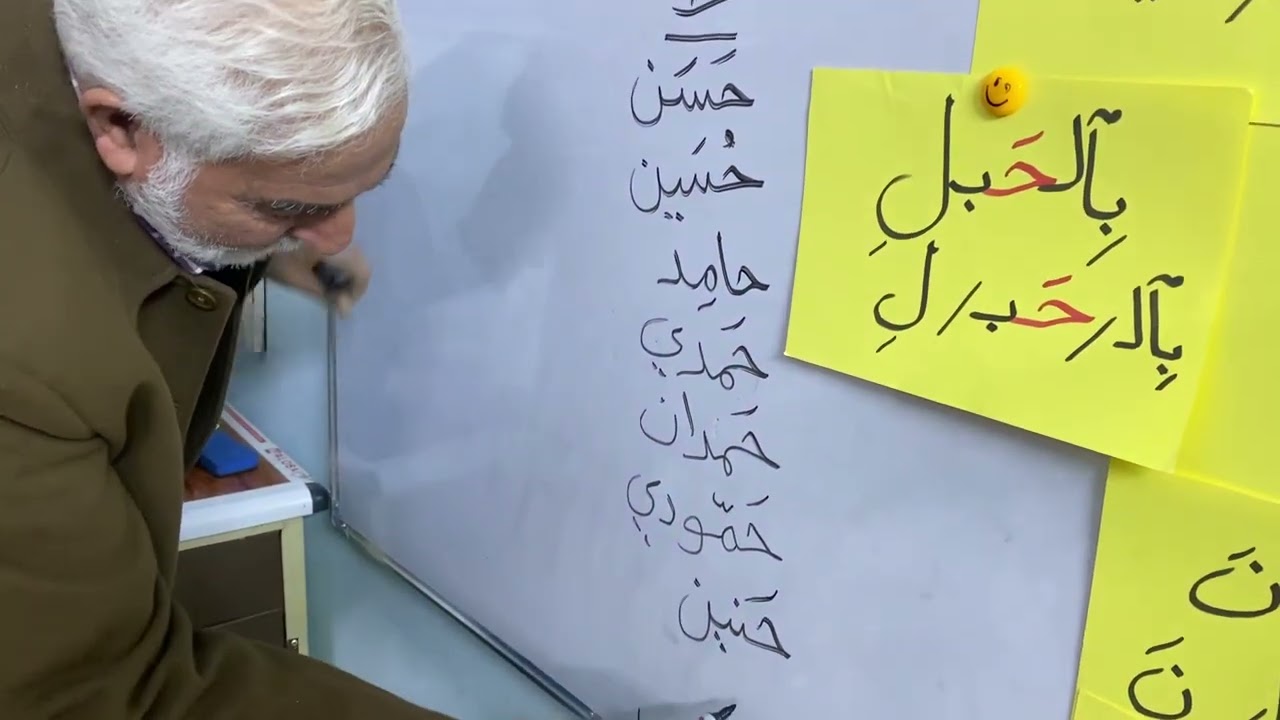 حَسَن
حُسَين
حامِد
حَمدي
حَمدان
حَمّودي
حَنين
بِٱلحَبلِ
بِٱلـ / حَـ / بـ / لِ
نَ
نَ